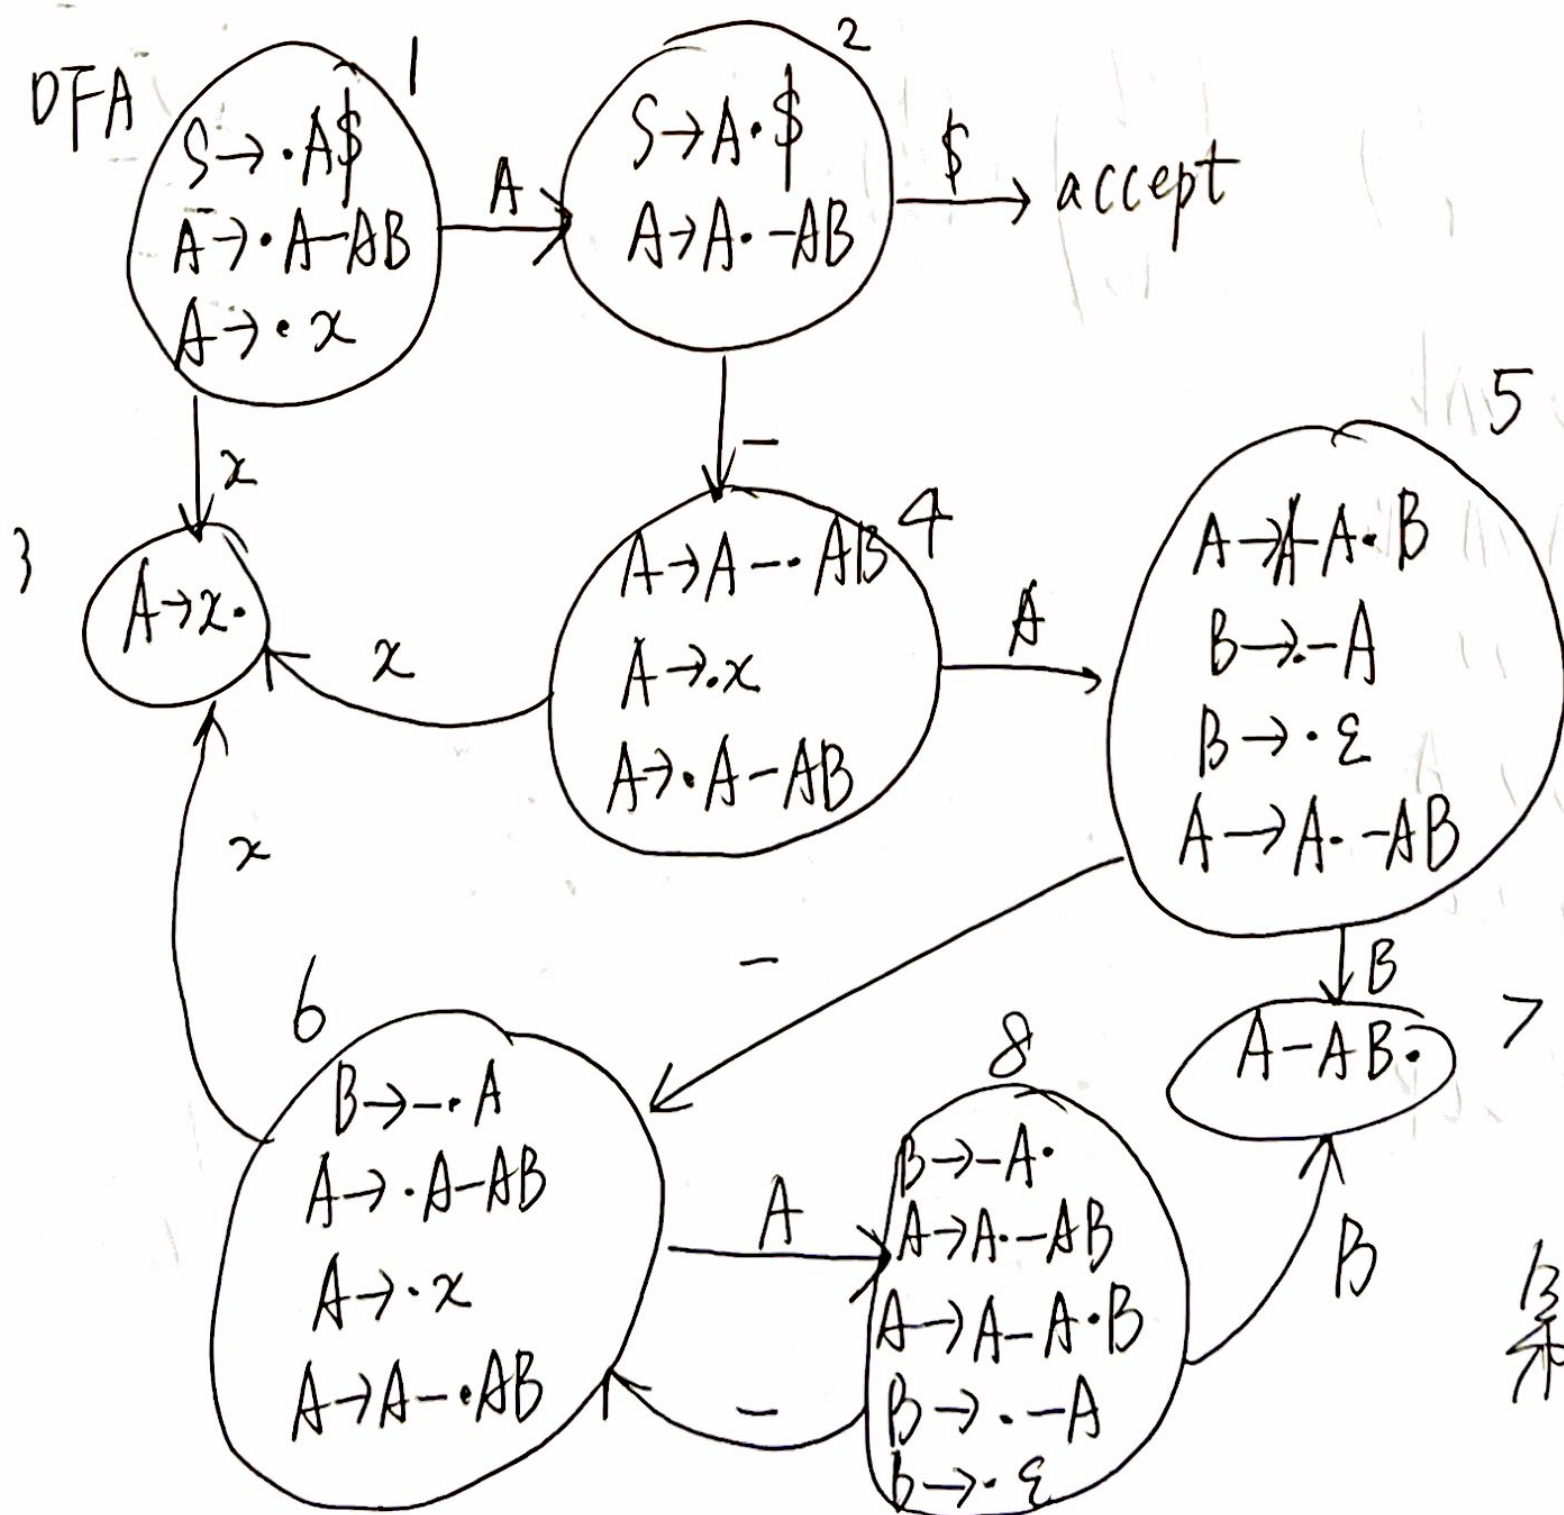 DFA
1
S→·A$
A→·A-AB
A→·x
A
2
S→A·$
A→A·-AB
$
accept
x
-
3
A→x·
x
4
A→A-·AB
A→·x
A→·A-AB
A
5
A→A-A·B
B→·-A
B→·ε
A→A·-AB
x
-
B
7
A-AB·
6
B→-·A
A→·A-AB
A→·x
A→A-·AB
A
-
8
B→-A·
A→A·-AB
A→A-A·B
B→·-A
B→·ε
B